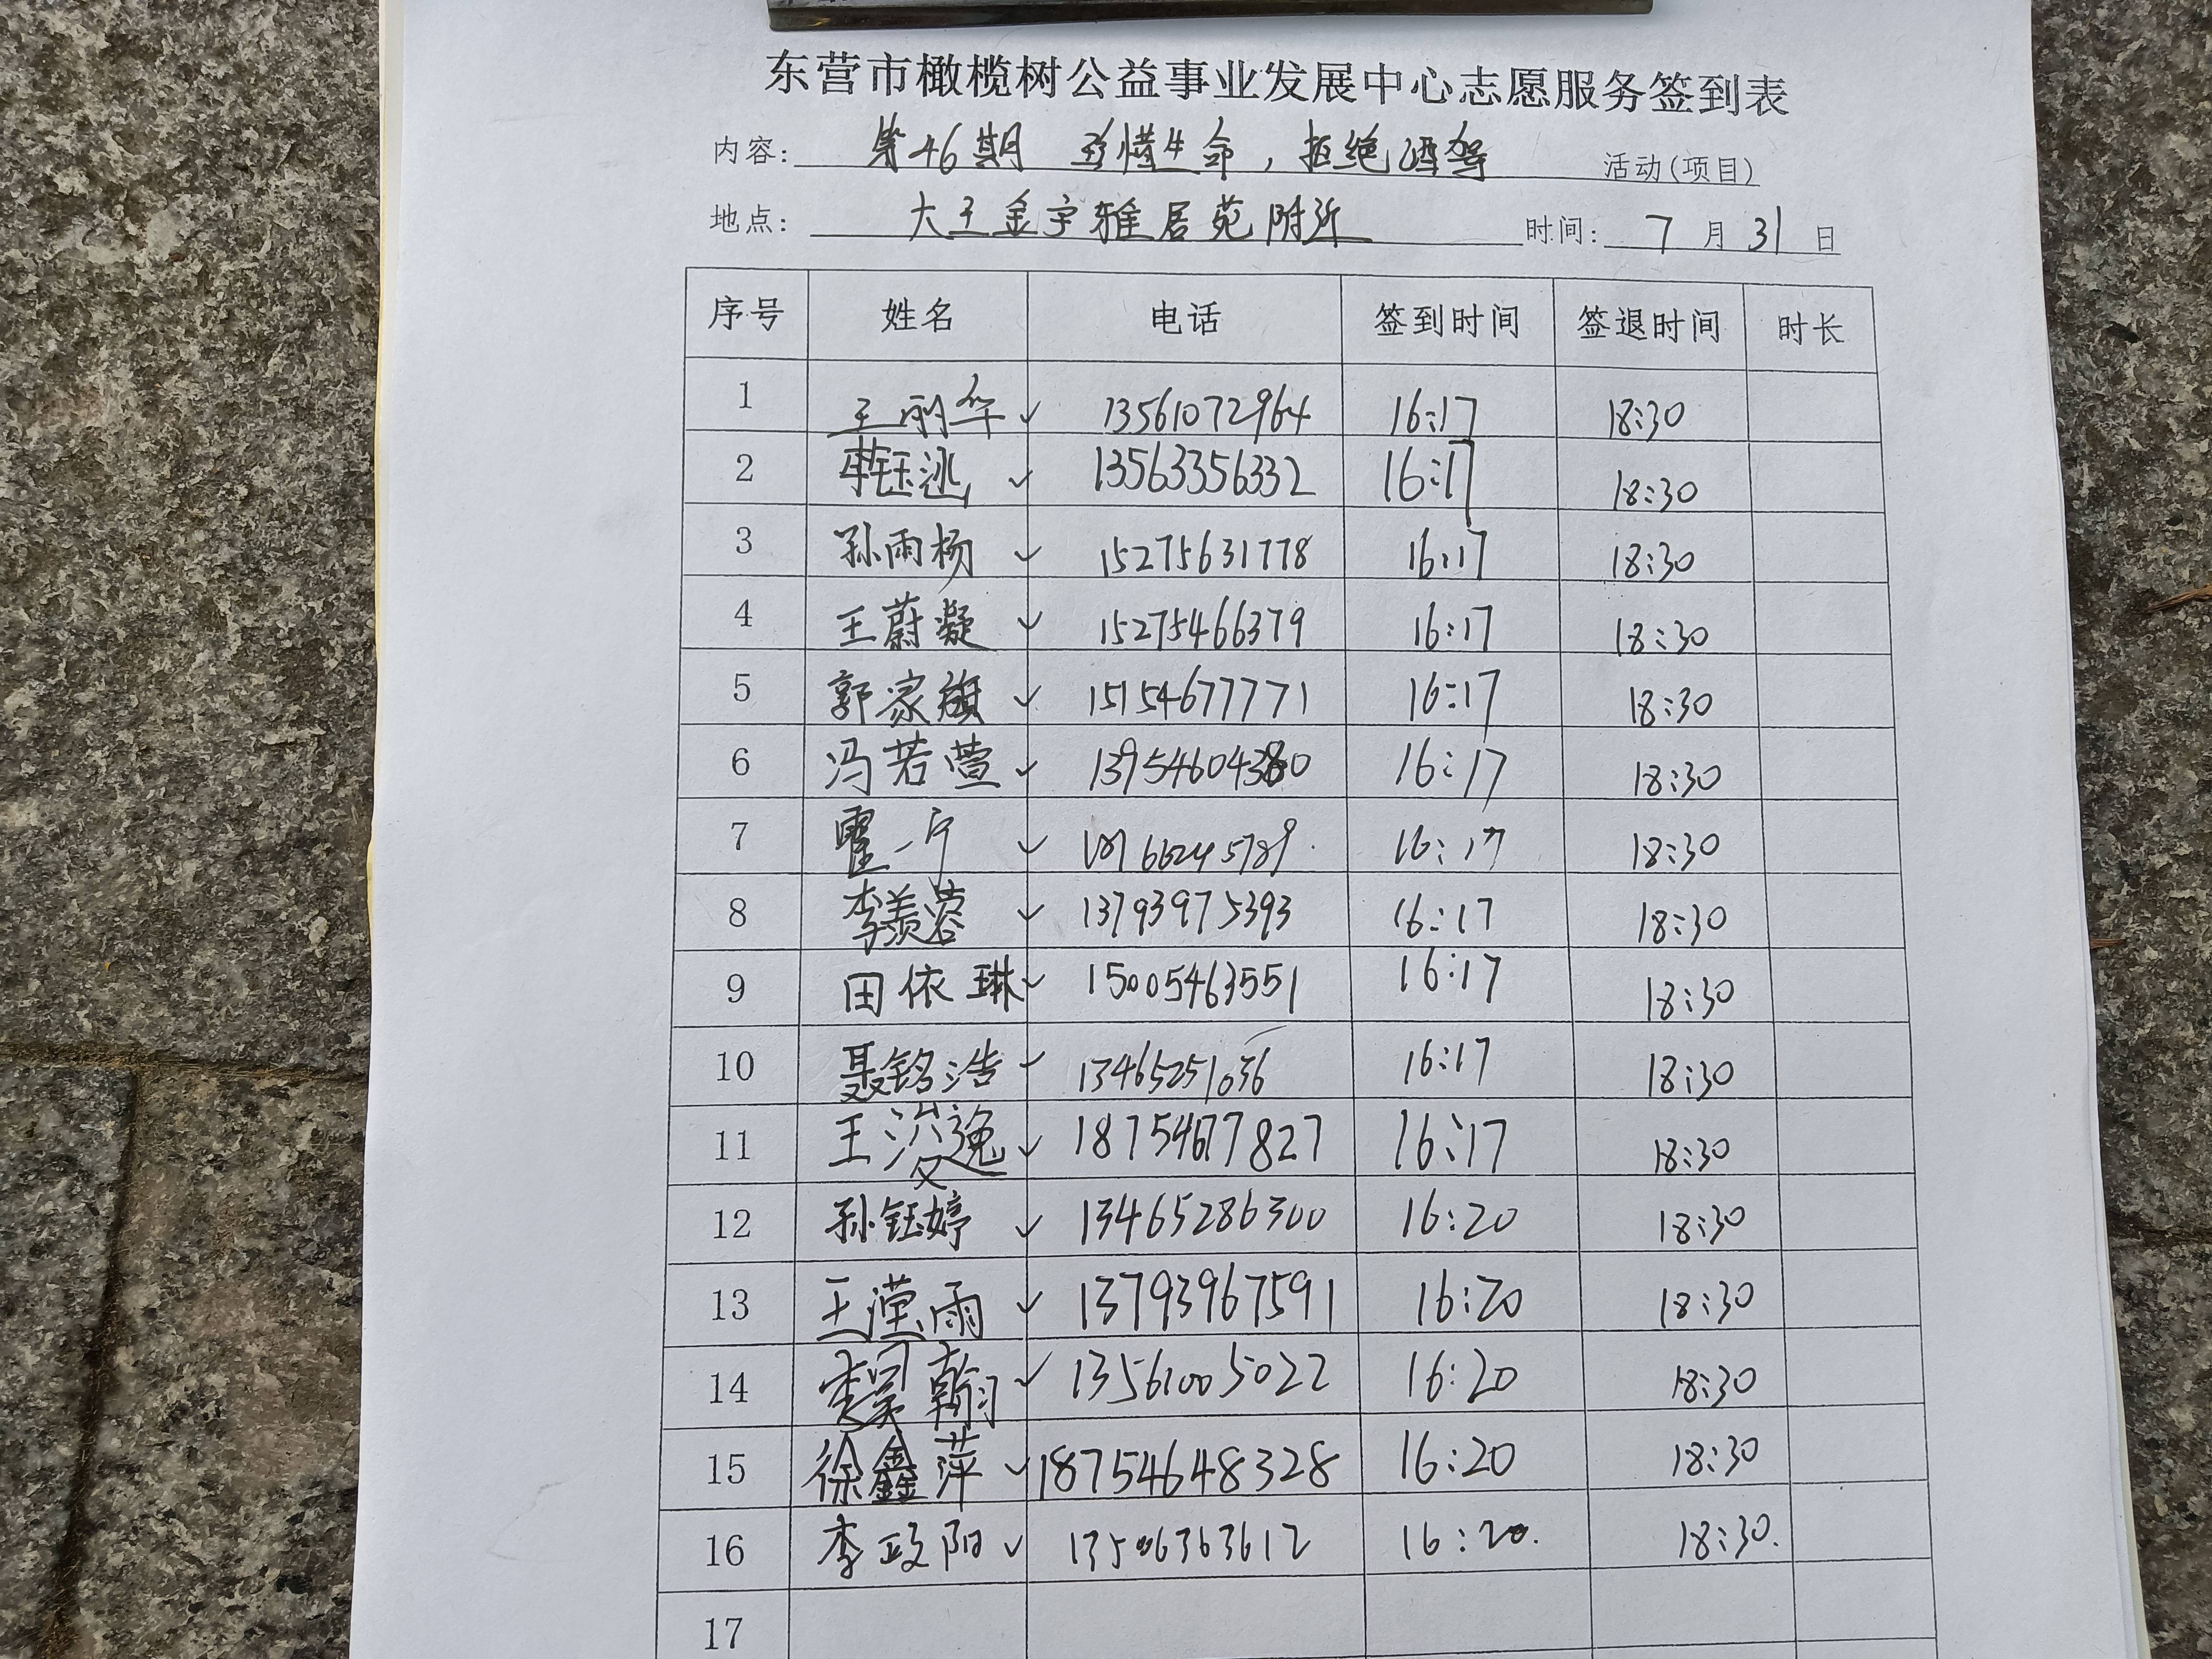 东营市橄榄树公益事业发展中心志愿服务签到表
内容: 第46期 珍惜生命，拒绝酒驾 活动(项目)
地点: 大王金宇雅居苑附近 时间: 7 月 31 日
序号 姓名 电话 签到时间 签退时间 时长
1 王丽华 ✓ 13561072964 16:17 18:30
2 李钰 ✓ 13563356332 16:17 18:30
3 孙雨杨 ✓ 15275631778 16:17 18:30
4 王蔚凝 ✓ 15275466379 16:17 18:30
5 郭家旗 ✓ 15154677771 16:17 18:30
6 冯若萱 ✓ 16:17 18:30
7 霍一宁 ✓ 16:17 18:30
8 李羡蓉 ✓ 13793975393 16:17 18:30
9 田依琳 ✓ 15005463551 16:17 18:30
10 聂铭浩 ✓ 13465251036 16:17 18:30
11 王浚逸 ✓ 18754677827 16:17 18:30
12 孙钰婷 ✓ 13465286300 16:20 18:30
13 王滢雨 ✓ 13793967591 16:20 18:30
14 翰 ✓ 13561005022 16:20 18:30
15 徐鑫萍 ✓ 18754648328 16:20 18:30
16 李政阳 ✓ 13506363612 16:20. 18:30.
17